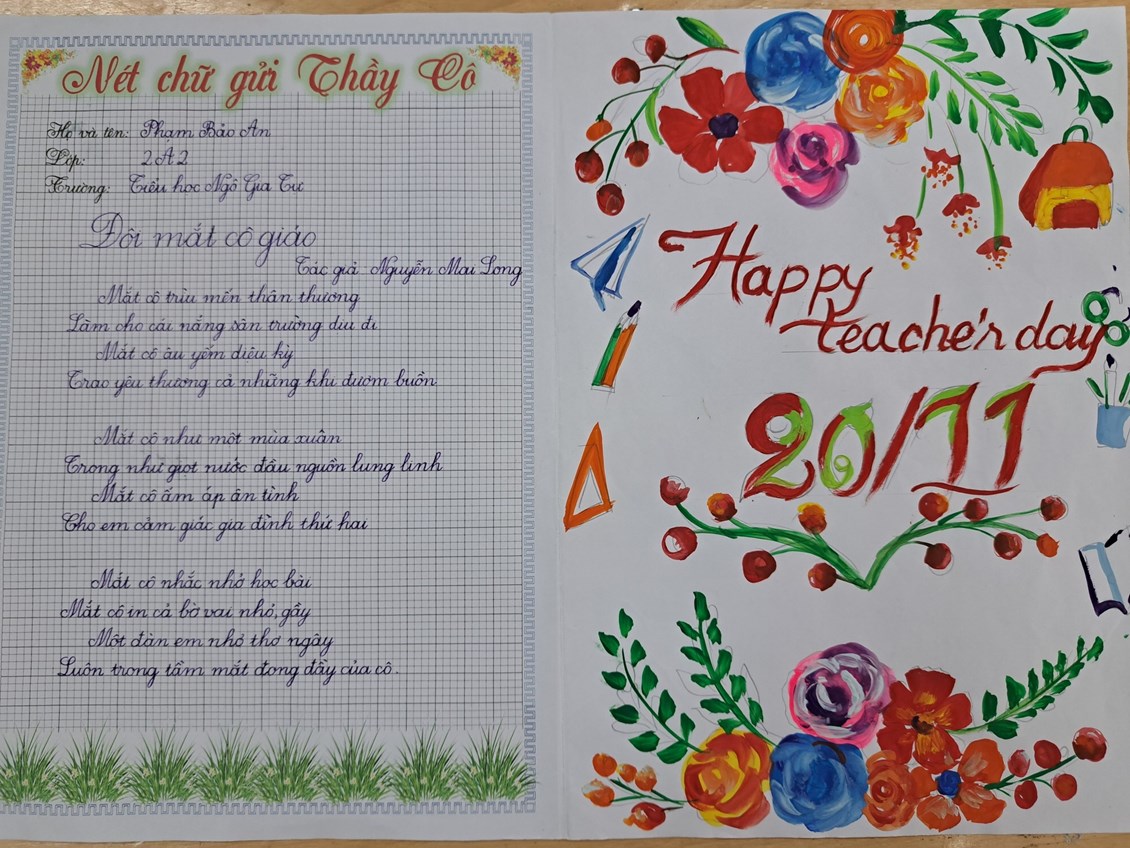 Nét chữ gửi Thầy Cô
Họ và tên: Phạm Bảo An
Lớp: 2A2
Trường: Tiểu học Ngô Gia Tự
Đôi mắt cô giáo
Tác giả Nguyễn Mai Long
Mắt cô trìu mến thân thương
Làm cho cái nắng sân trường dịu đi
Mắt cô âu yếm diệu kỳ
Trao yêu thương cả những khi đượm buồn
Mắt cô như một mùa xuân
Trong như giọt nước đầu nguồn lung linh
Mắt cô ấm áp ân tình
Cho em cảm giác gia đình thứ hai
Mắt cô nhắc nhở học bài
Mắt cô in cả bờ vai nhỏ, gầy
Một đàn em nhỏ thơ ngây
Luôn trong tầm mắt đong đầy của cô.
Happy
teache'r day
20/11